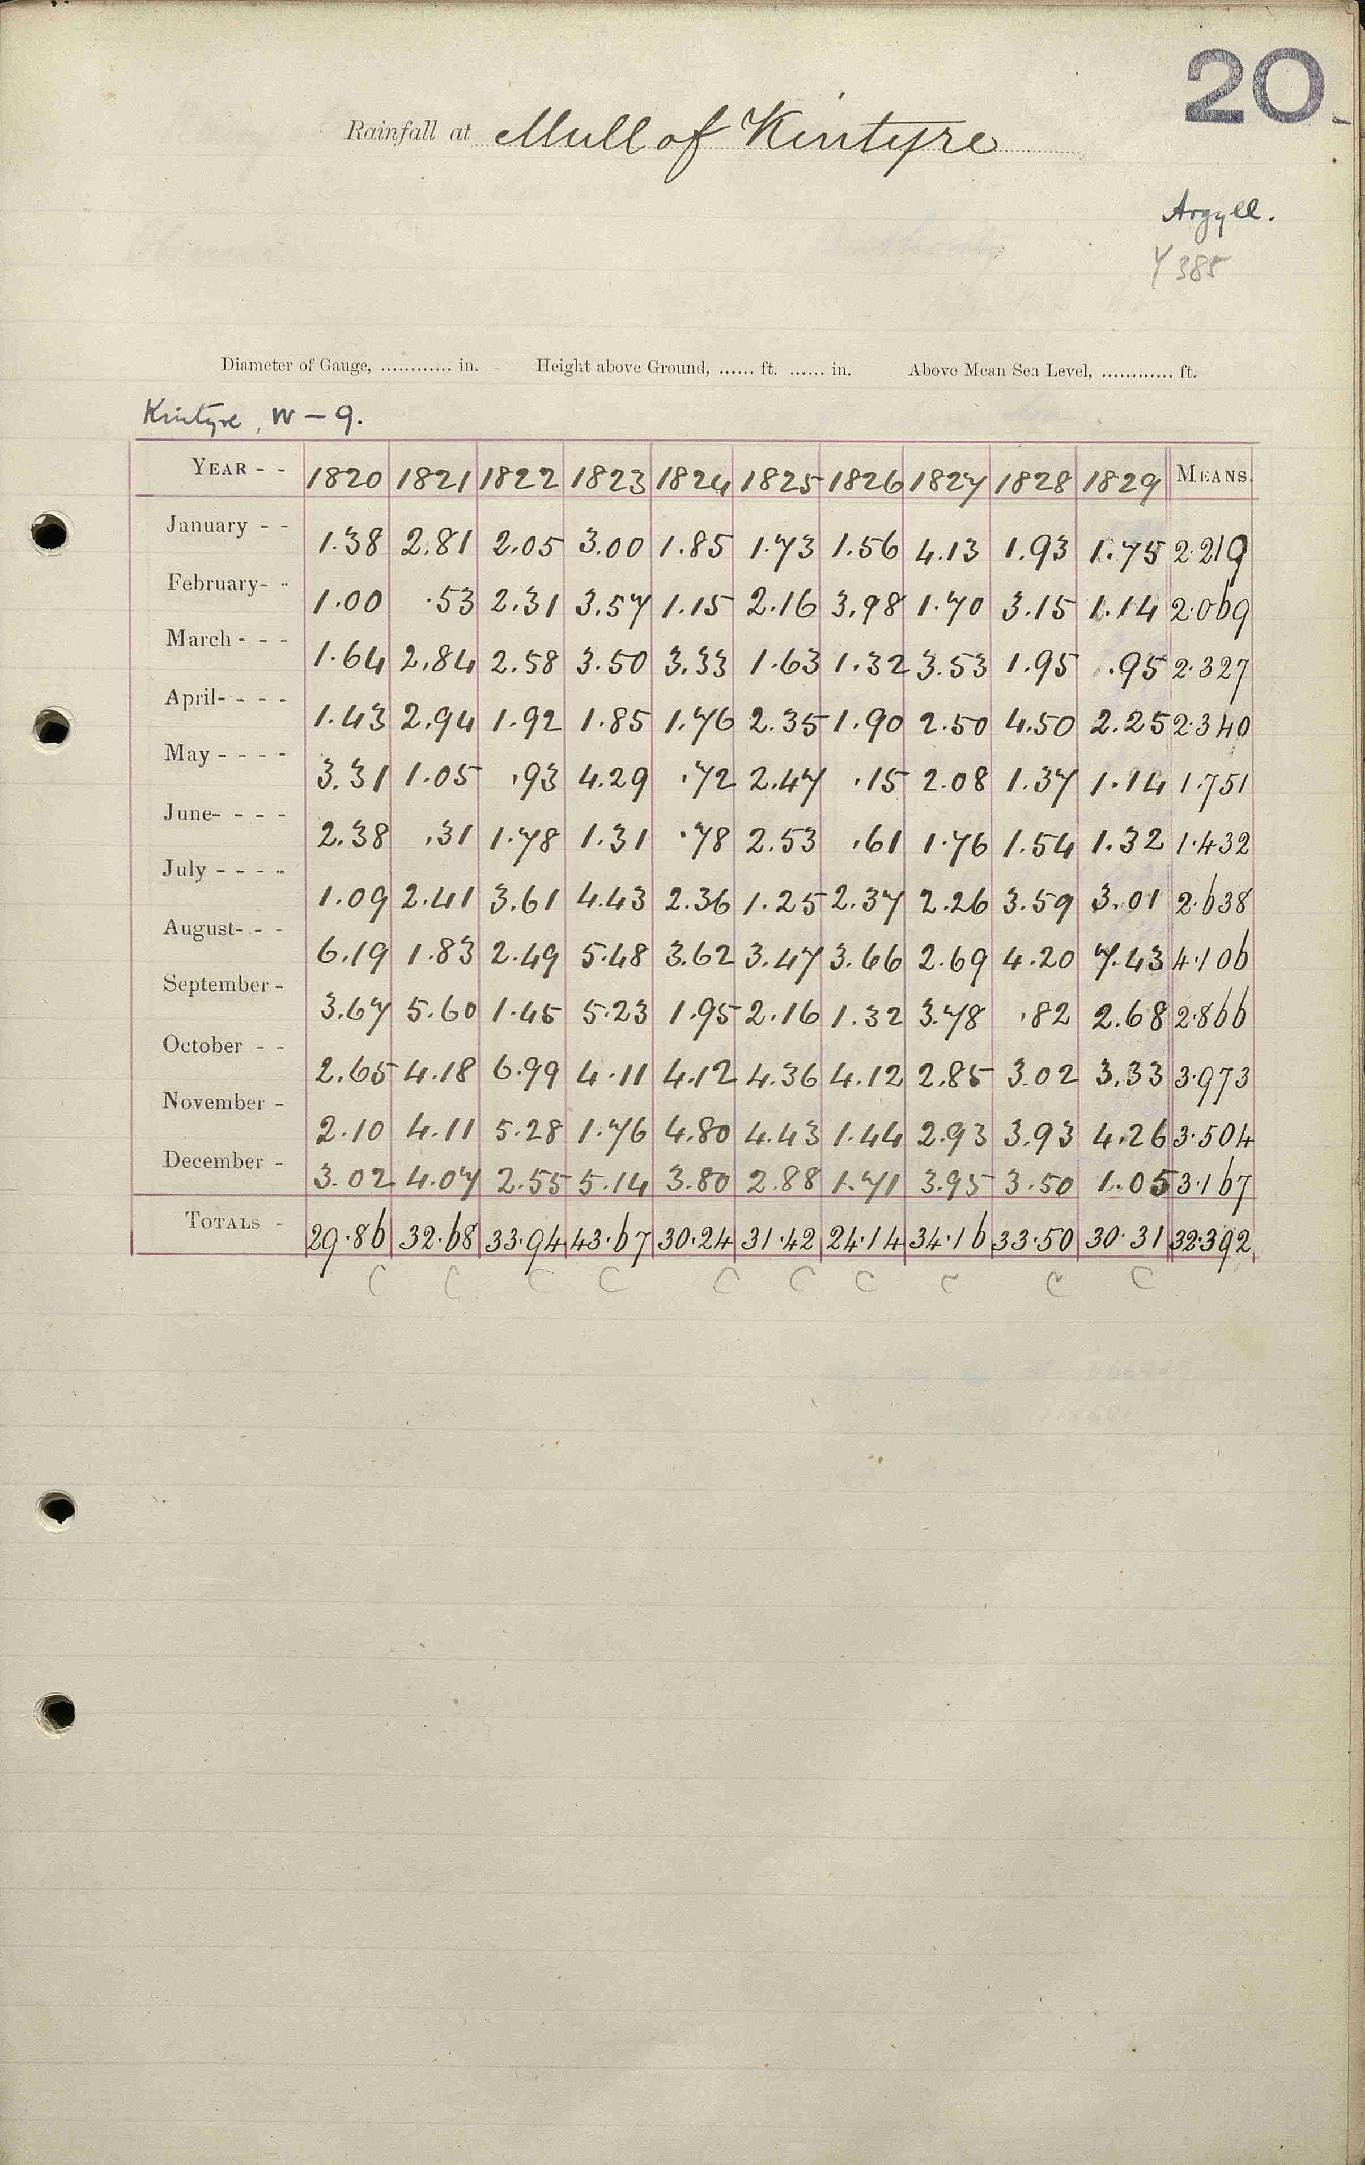 20
Rainfall at Mull of Kintyre
Argyll.
Y 385
Diameter of Gauge, ............ in. Height above Ground, ...... ft. ...... in. Above Mean Sea Level, ............ ft.
Kintyre, W – 9.
YEAR - - 1820 1821 1822 1823 1824 1825 1826 1827 1828 1829 MEANS.
January - - 1.38 2.81 2.05 3.00 1.85 1.73 1.56 4.13 1.93 1.75 2.219
February - - 1.00 .53 2.31 3.57 1.15 2.16 3.98 1.70 3.15 1.14 2.069
March - - - 1.64 2.84 2.58 3.50 3.33 1.63 1.32 3.53 1.95 .95 2.327
April - - - - 1.43 2.94 1.92 1.85 1.76 2.35 1.90 2.50 4.50 2.25 2.340
May - - - - 3.31 1.05 .93 4.29 .72 2.47 .15 2.08 1.37 1.14 1.751
June - - - - 2.38 .31 1.78 1.31 .78 2.53 .61 1.76 1.54 1.32 1.432
July - - - - 1.09 2.41 3.61 4.43 2.36 1.25 2.37 2.26 3.59 3.01 2.638
August - - - 6.19 1.83 2.49 5.48 3.62 3.47 3.66 2.69 4.20 7.43 4.106
September - 3.67 5.60 1.45 5.23 1.95 2.16 1.32 3.78 .82 2.68 2.866
October - - 2.65 4.18 6.99 4.11 4.12 4.36 4.12 2.85 3.02 3.33 3.973
November - 2.10 4.11 5.28 1.76 4.80 4.43 1.44 2.93 3.93 4.26 3.504
December - 3.02 4.07 2.55 5.14 3.80 2.88 1.71 3.95 3.50 1.05 3.167
TOTALS - 29.86 32.68 33.94 43.67 30.24 31.42 24.14 34.16 33.50 30.31 32.392
C C C C C C C C C C